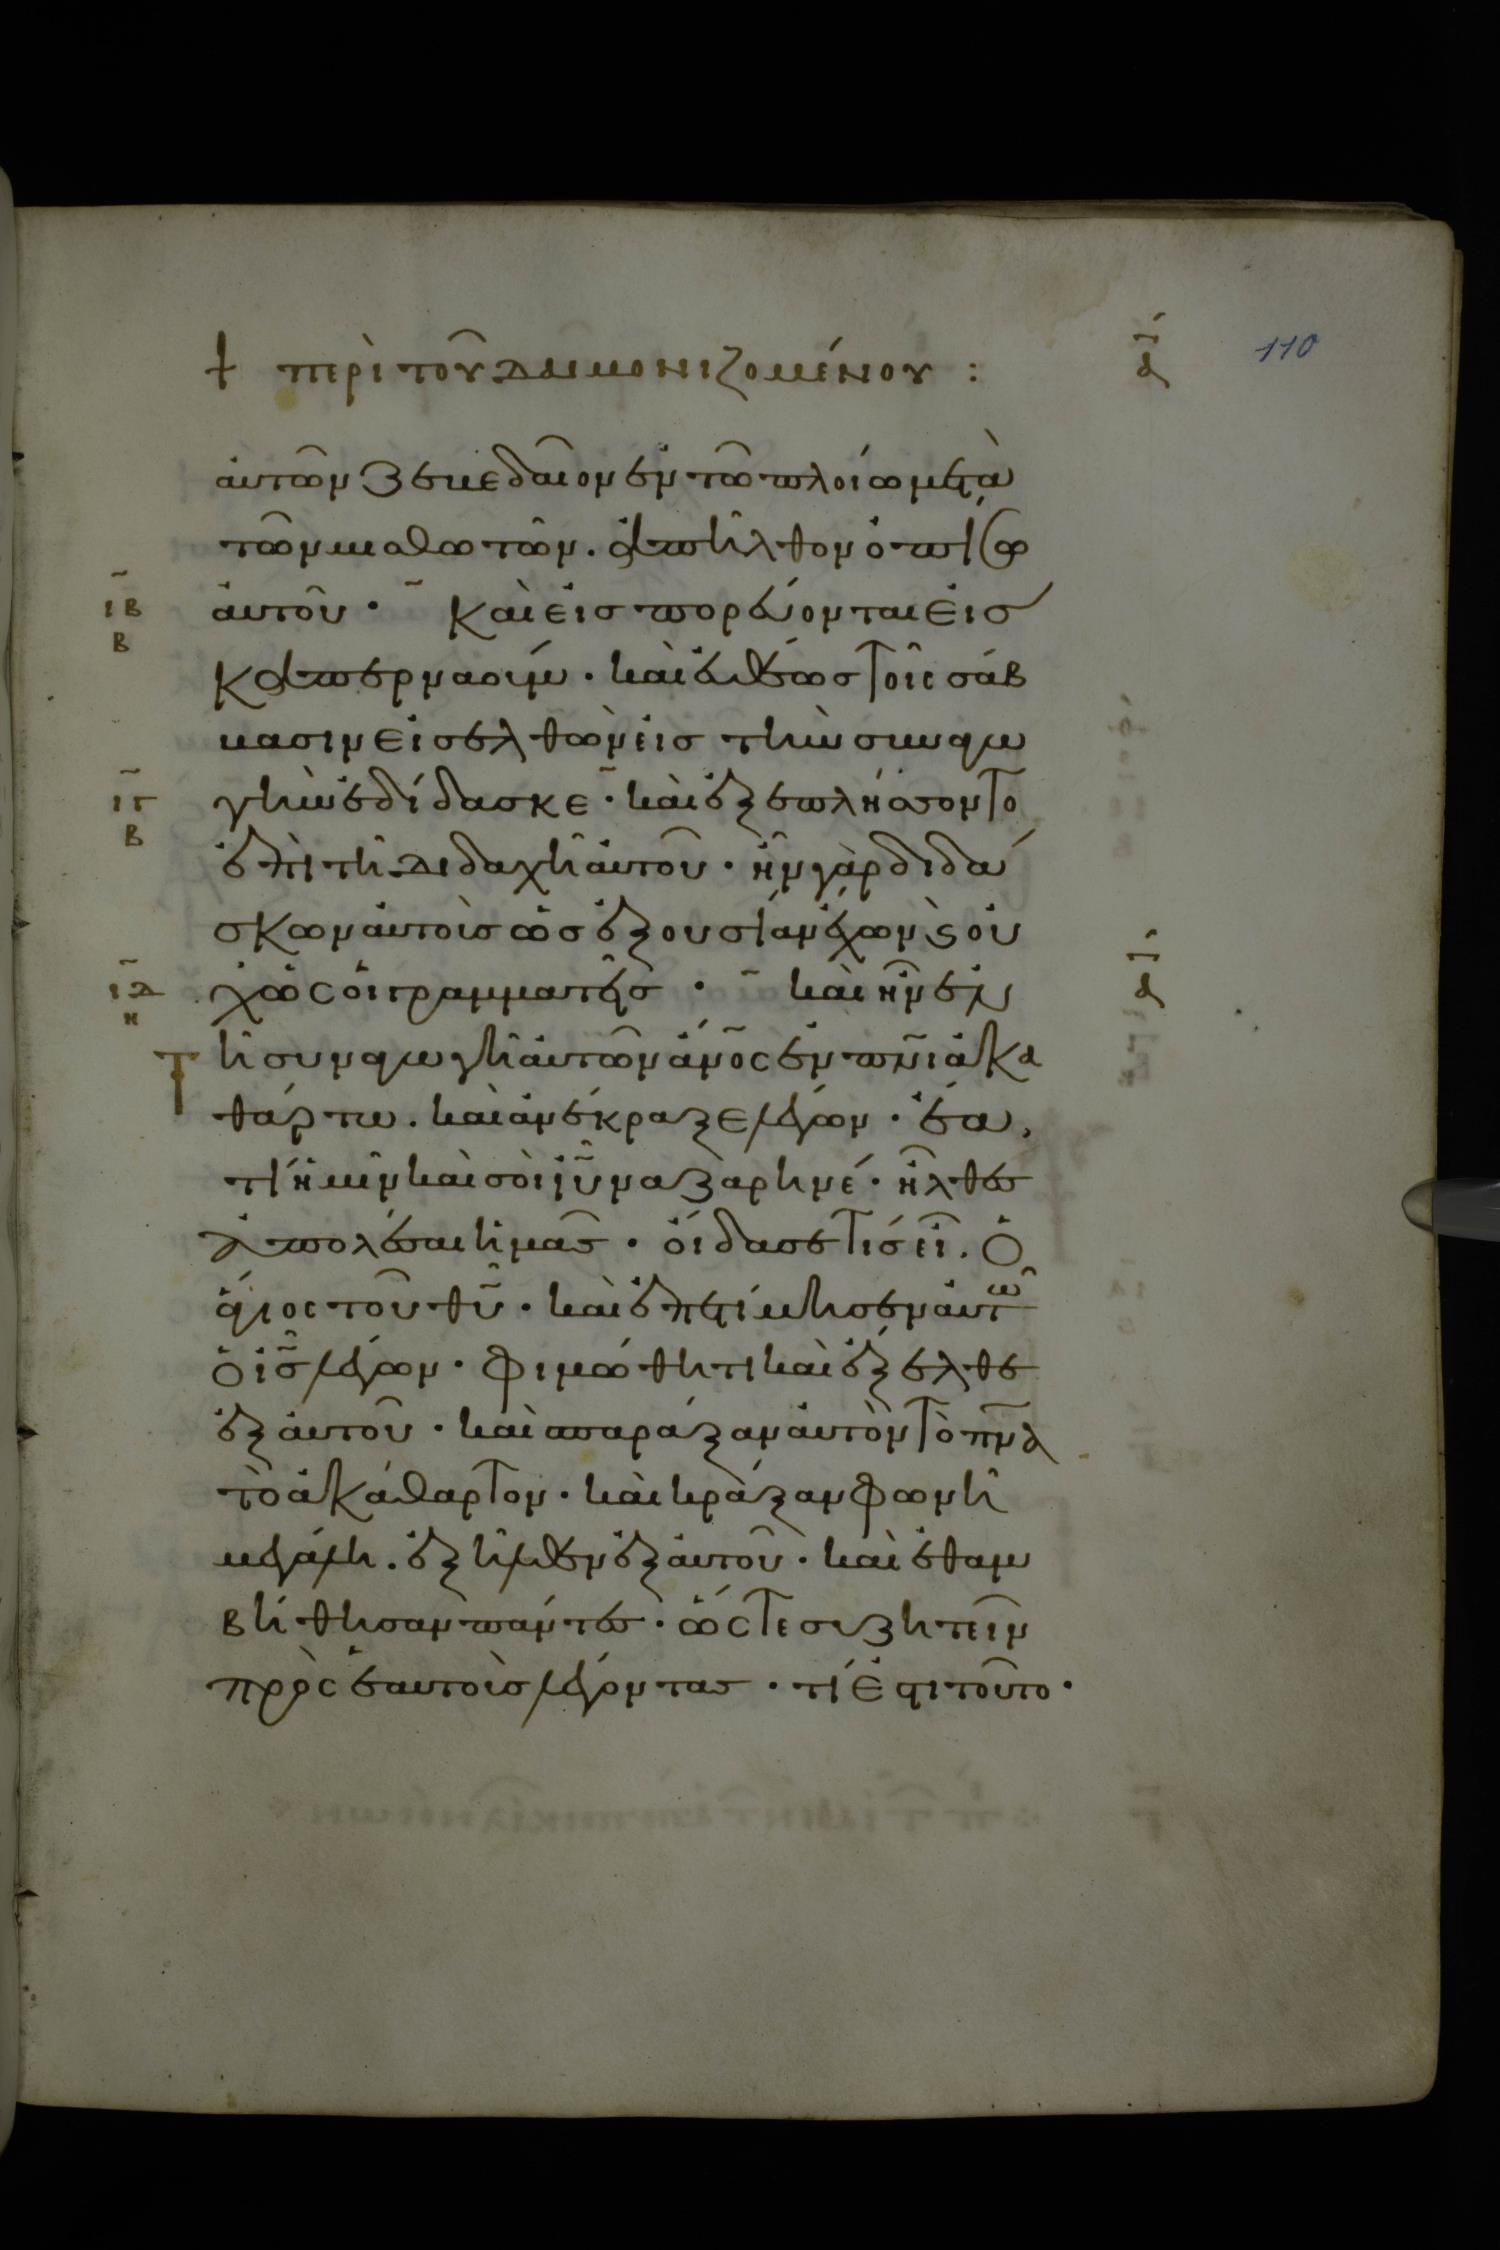 + περὶ τοῦ δαιμονιζομένου :
α
110
αυτῶν ζεβεδαῖον ἐν τῶ πλοίω μετὰ
τῶν μισθωτῶν. ἀπῆλθον ὀπίσω
ἀυτοῦ · καὶ εἰσπορεύονται εἰσ
ιβ
β
καπερναοὺμ · καὶ ἐυθέωσ τοῖς σάβ
βασιν εἰσελθὼν εἰσ τὴν συναγω
γὴν ἐδίδασκε · καὶ ἐξεπλήσσοντο
ιγ
β
ἐπὶ τῆ διδαχῆ ἀυτοῦ · ἦν γὰρ διδά
σκων ἀυτοὺσ ὡσ ἐξουσίαν ἔχων ϗ οὐ
χ ὡς οἱ γραμματεῖσ · καὶ ἦν ἐν
ιδ
η
α
τῆ συναγωγῆ ἀυτῶν ἄνος ἐν πνι ἀκα
θάρτω. καὶ ἀνέκραξε λέγων · ἔα,
τί ἡμῖν καὶ σοὶ ιῦ ναζαρηνέ · ἦλθεσ
ἀπολέσαι ἡμᾶσ · οἶδα σε τίσ εἶ. ὁ
ἅγιος τοῦ θῦ · καὶ ἐπετίμησεν ἀυτῶ
ὁ ισ λέγων · φιμώθητι καὶ ἔξελθε
ἐξ ἀυτοῦ · καὶ σπαράξαν ἀυτὸν τὸ πνα
τὸ ἀκάθαρτον · καὶ κράξαν φωνῆ
μεγάλη. ἐξῆλθεν ἐξ ἀυτοῦ · καὶ ἐθαμ
βήθησαν πάντεσ · ὥςτε συζητεῖν
πρὸς ἑαυτοὺσ λέγοντασ · τί ἐστι τοῦτο ·